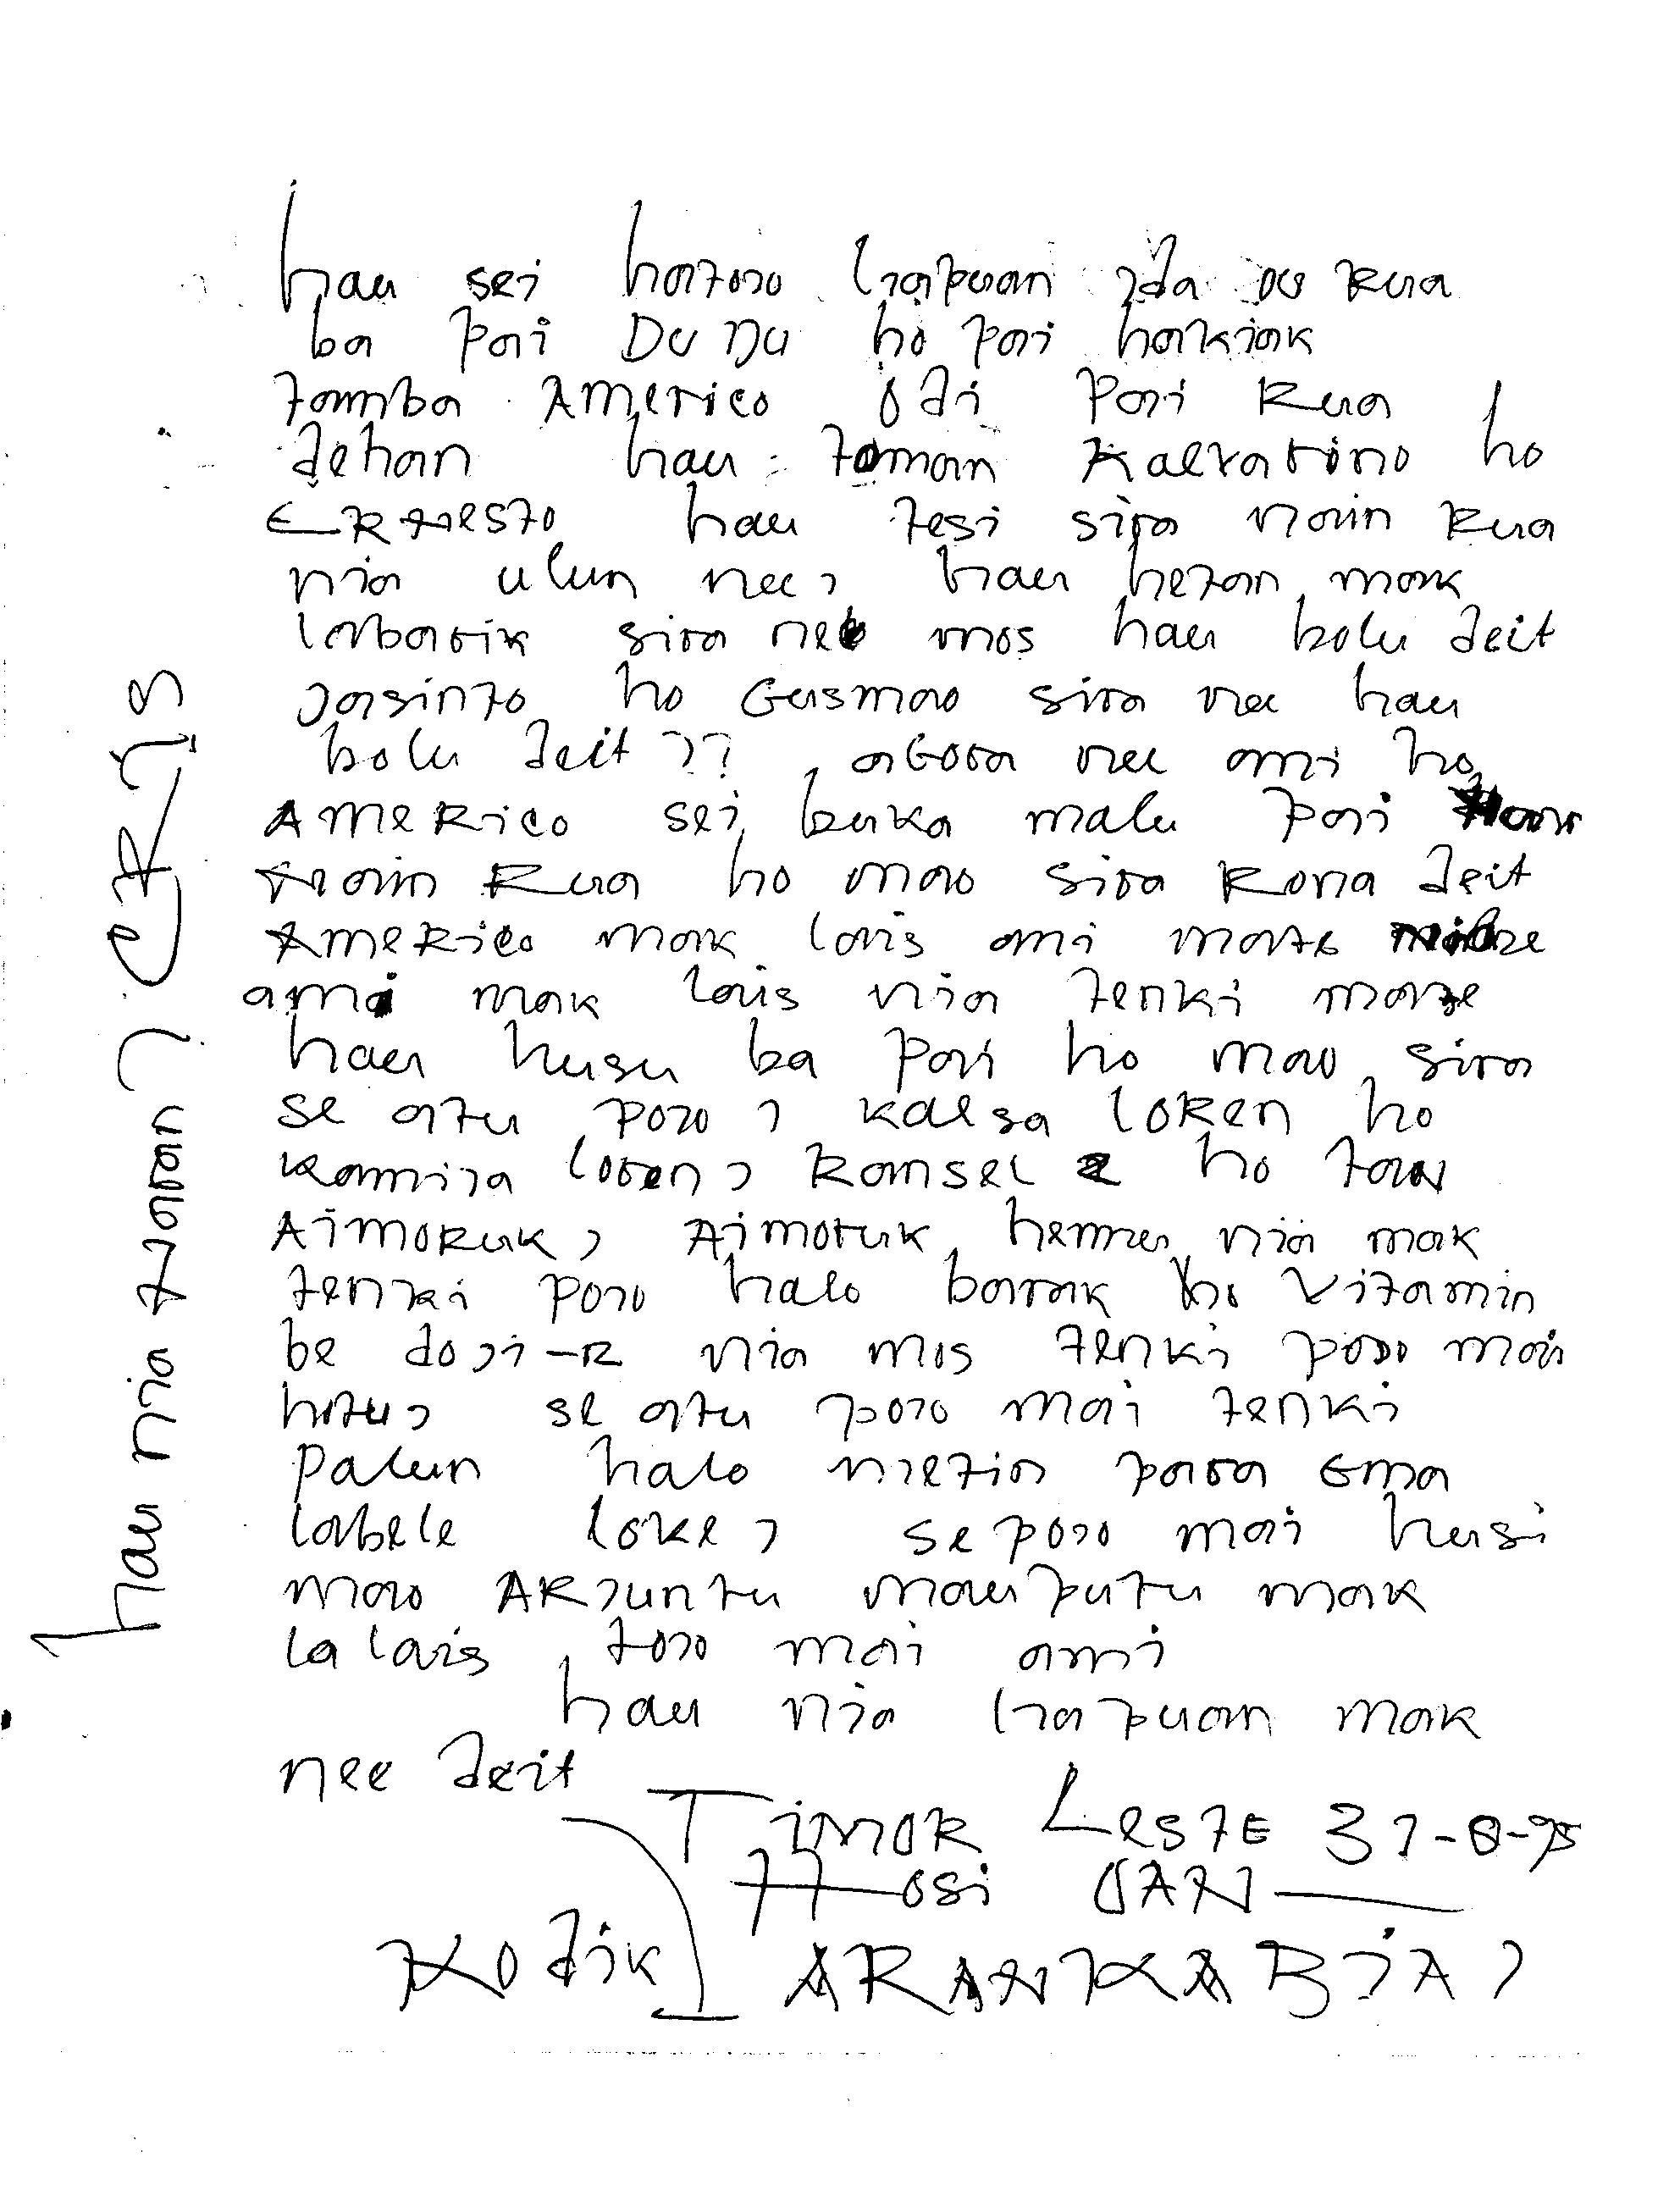 hau sei hatoo liafuan ida ou Rua
ba Pai DU DU ho Pai hakiak
tamba AMERICO odi Pai Rua
dehan hau taman Kalvarino ho
ERNESTO hau tesi sira nain Rua
nia ulun nee, hau hetan mak
labarik sira nee mos hau bolu deit
Jasinto ho Gusmao sira nee hau
bolu deit ?? agora nee ami ho
AMERICO sei buka malu Pai
nain Rua ho mao sira Rona deit
AMERICO mak lais ami mate
ami mak lais nia tenki mate
hau husu ba Pai ho mao sira
se atu poso, kalsa loren ho
kamiza loren, Ramsel ho tan
AiMORuk, Aimoruk hemu nia mak
tenki poso halo barak ho Vitamin
be dozi-R nia mos tenki poso mai
hotu, se atu poso mai tenki
Palun halo metin para Ema
labele loke, se poso mai husi
mao ARJuntu mauputu mak
lalais toso mai ami
hau nia liafuan mak
nee deit
TIMOR LESTE 31-8-95
Hosi OAN
Kodik ARANKABIA,
hau nia naran, CRIS